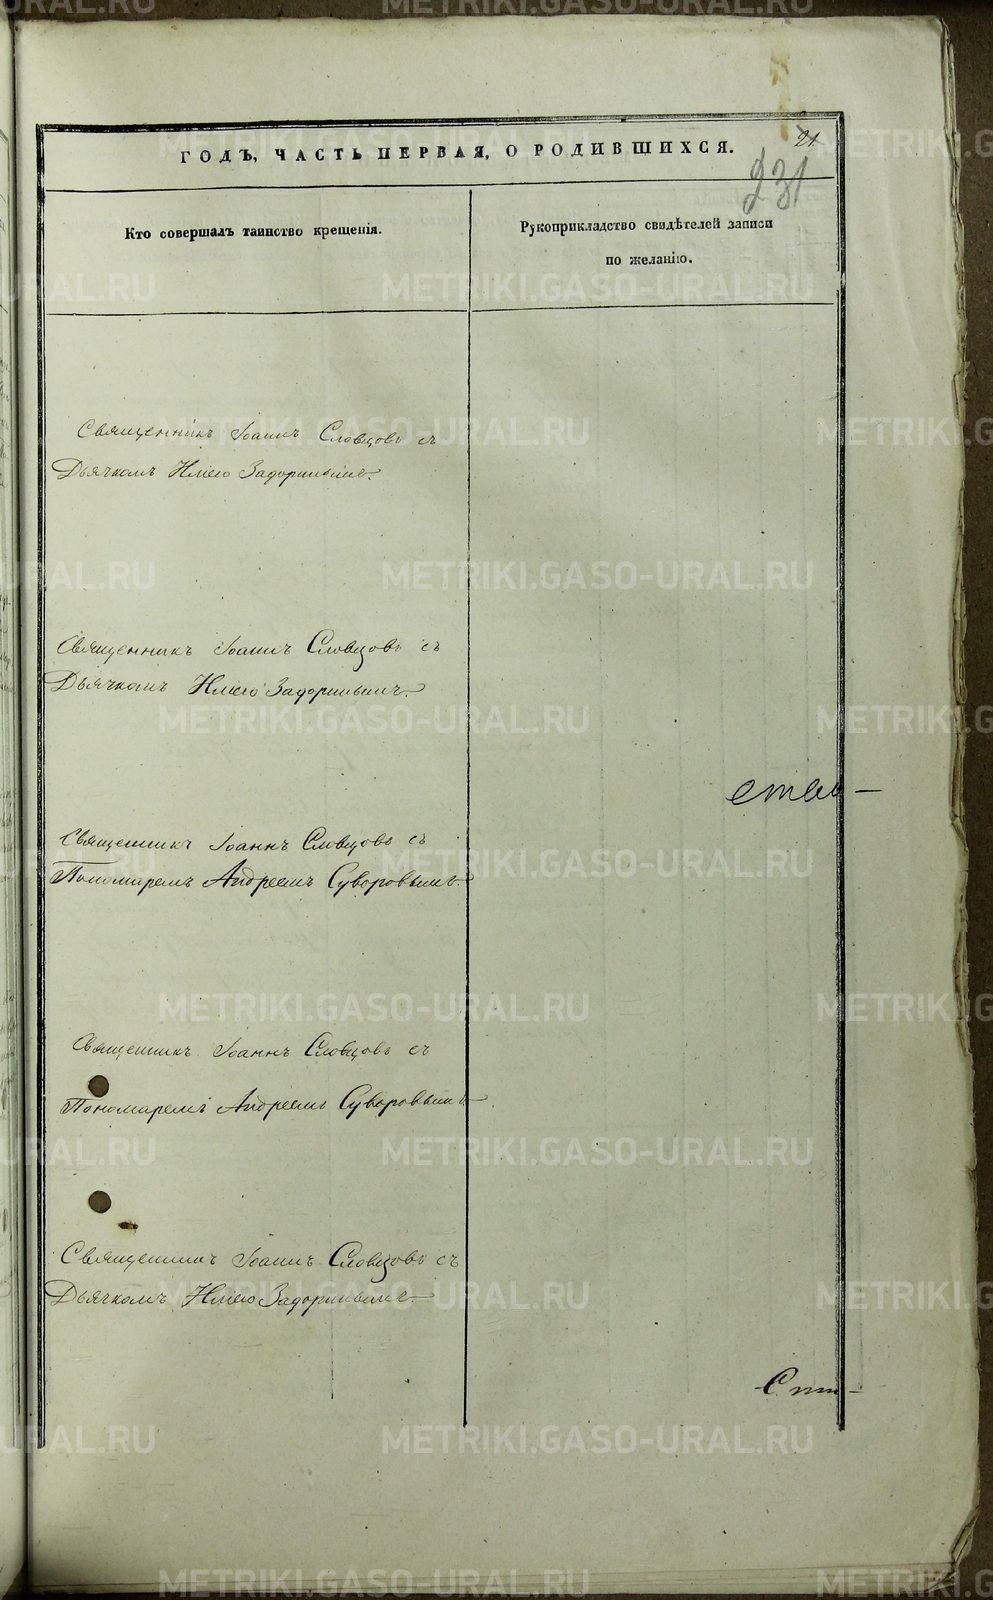 ГОДЪ, ЧАСТЬ ПЕРВАЯ, О РОДИВШИХСЯ.
21
231
Кто совершалъ таинство крещенія.
Рукоприкладство свидѣтелей записи
по желанію.
Священникъ Іоаннъ Словцовъ съ
Дьячкомъ Иліею Задоринымъ.
Священникъ Іоаннъ Словцовъ съ
Дьячкомъ Иліею Задоринымъ.
Священникъ Іоаннъ Словцовъ съ
Пономаремъ Андреемъ Суворовымъ.
Священникъ Іоаннъ Словцовъ съ
Пономаремъ Андреемъ Суворовымъ
Священникъ Іоаннъ Словцовъ съ
Дьячкомъ Иліею Задоринымъ.
METRIKI.GASO-URAL.RU